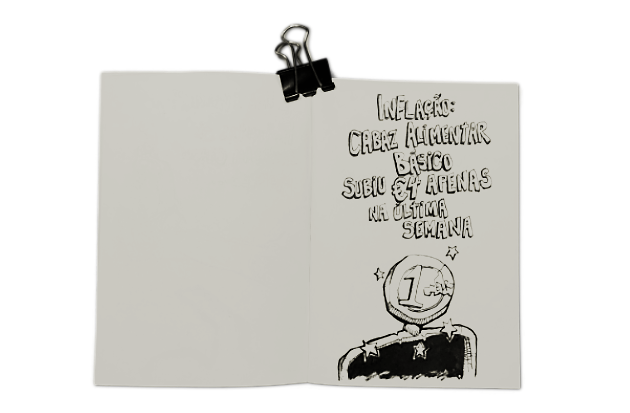 INFLAÇÃO:
CABAZ ALIMENTAR
BÁSICO
SUBIU €4 APENAS
NA ÚLTIMA
SEMANA
1